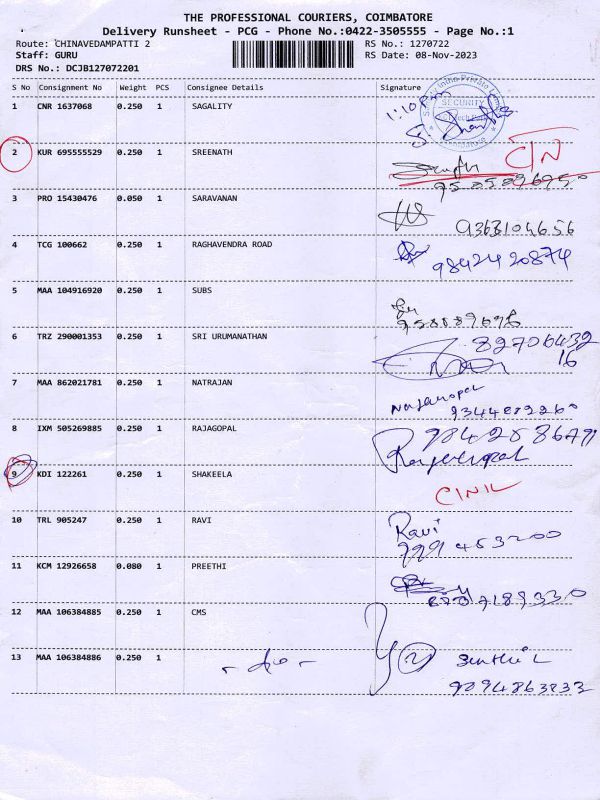 THE PROFESSIONAL COURIERS, COIMBATORE
Delivery Runsheet - PCG - Phone No.:0422-3505555 - Page No.:1
Route: CHINAVEDAMPATTI 2 RS No.: 1270722
Staff: GURU RS Date: 08-Nov-2023
DRS No.: DCJB127072201
S No Consignment No Weight PCS Consignee Details Signature
1 CNR 1637068 0.250 1 SAGALITY 1:10 PM
SECURITY
2 KUR 695555529 0.250 1 SREENATH
3 PRO 15430476 0.050 1 SARAVANAN
9363104656
4 TCG 100662 0.250 1 RAGHAVENDRA ROAD
9842420874
5 MAA 104916920 0.250 1 SUBS
6 TRZ 290001353 0.250 1 SRI URUMANATHAN 82706432
16
7 MAA 862021781 0.250 1 NATRJAN
8 IXM 505269885 0.250 1 RAJAGOPAL
9 KDI 122261 0.250 1 SHAKEELA
10 TRL 905247 0.250 1 RAVI Ravi
11 KCM 12926658 0.080 1 PREETHI
12 MAA 106384885 0.250 1 CMS
13 MAA 106384886 0.250 1 - do - 2 Senthil